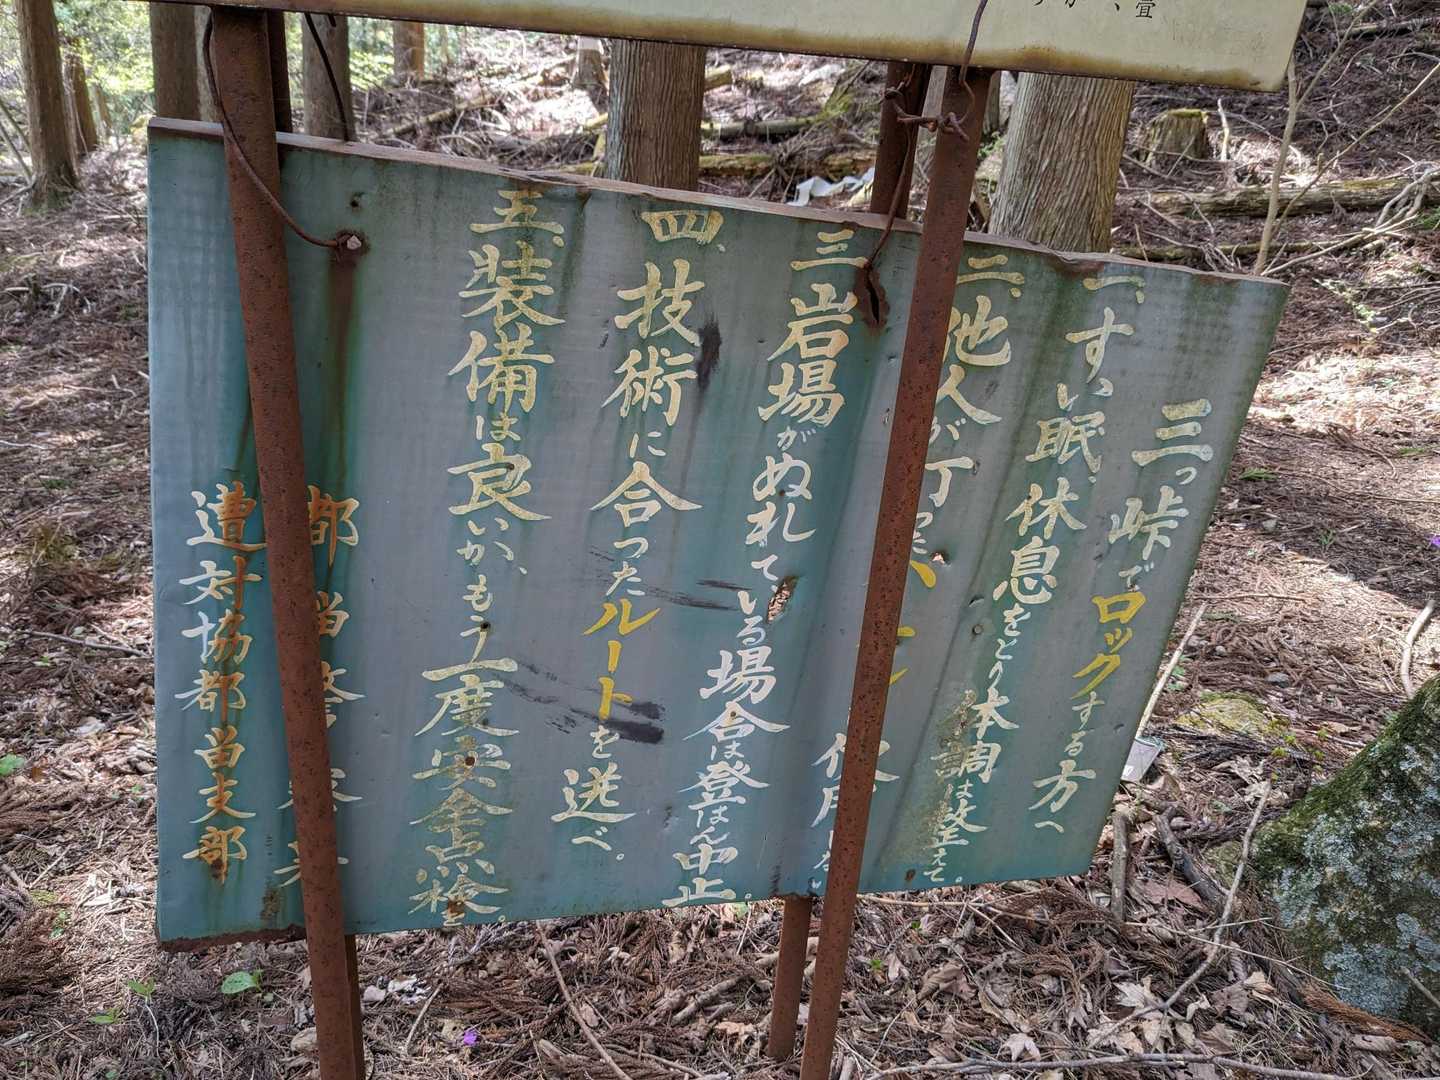 三ッ峠でロックする方へ
一、すい眠、休息をとり体調は整えて。
二、他人が打った
三、岩場がぬれている場合は登はん中止。
四、技術に合ったルートを選べ。
五、装備は良いか、もう一度安全点検を。
都
遭対協都留支部